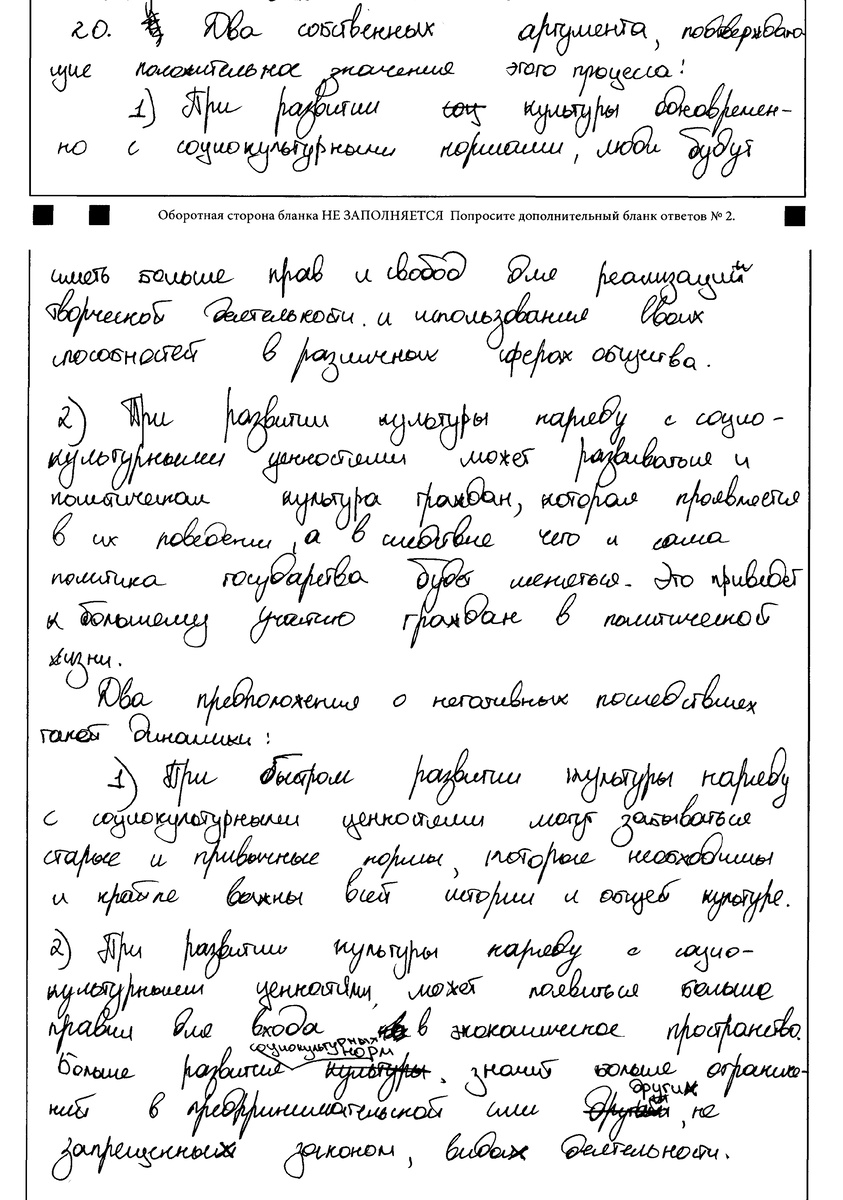 20. Два собственных аргумента, подтверждаю
щие положительное значения этого процесса:
1) При развитии соц культуры одновремен-
но с социокультурными нормами, люди будут
Оборотная сторона бланка НЕ ЗАПОЛНЯЕТСЯ Попросите дополнительный бланк ответов № 2.
иметь больше прав и свобод для реализации
творческой деятельности и использования своих
способностей в различных сферах общества.
2) При развитии культуры наряду с социо-
культурными ценностями может развиваться и
политическая культура граждан, которая проявляется
в их поведении, а в следствие чего и сама
политика государства будет меняться. Это приведёт
к большему участию граждан в политической
жизни.
Два предположения о негативных последствиях
такой динамики:
1) При быстром развитии культуры наряду
с социокультурными ценностями могут забываться
старые и привычные нормы, которые необходимы
и крайне важны всей истории и общей культуре.
2) При развитии культуры наряду с социо-
культурными ценностями, может появиться больше
правил для входа в экономическое пространство.
социокультурных норм
Больше развития культуры, значит больше ограниче-
ний в предпринимательской или других, не
запрещенных законом, видах деятельности.